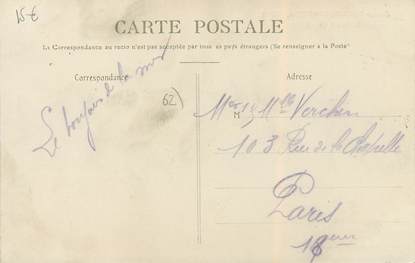 15€
CARTE POSTALE
La Correspondance au recto n'est pas acceptée par tous les pays étrangers (Se renseigner à la Poste)
Correspondance
Adresse
Le bonjour de la
62)
M
Melle
103 Rue de la Chapelle
Paris
18eme